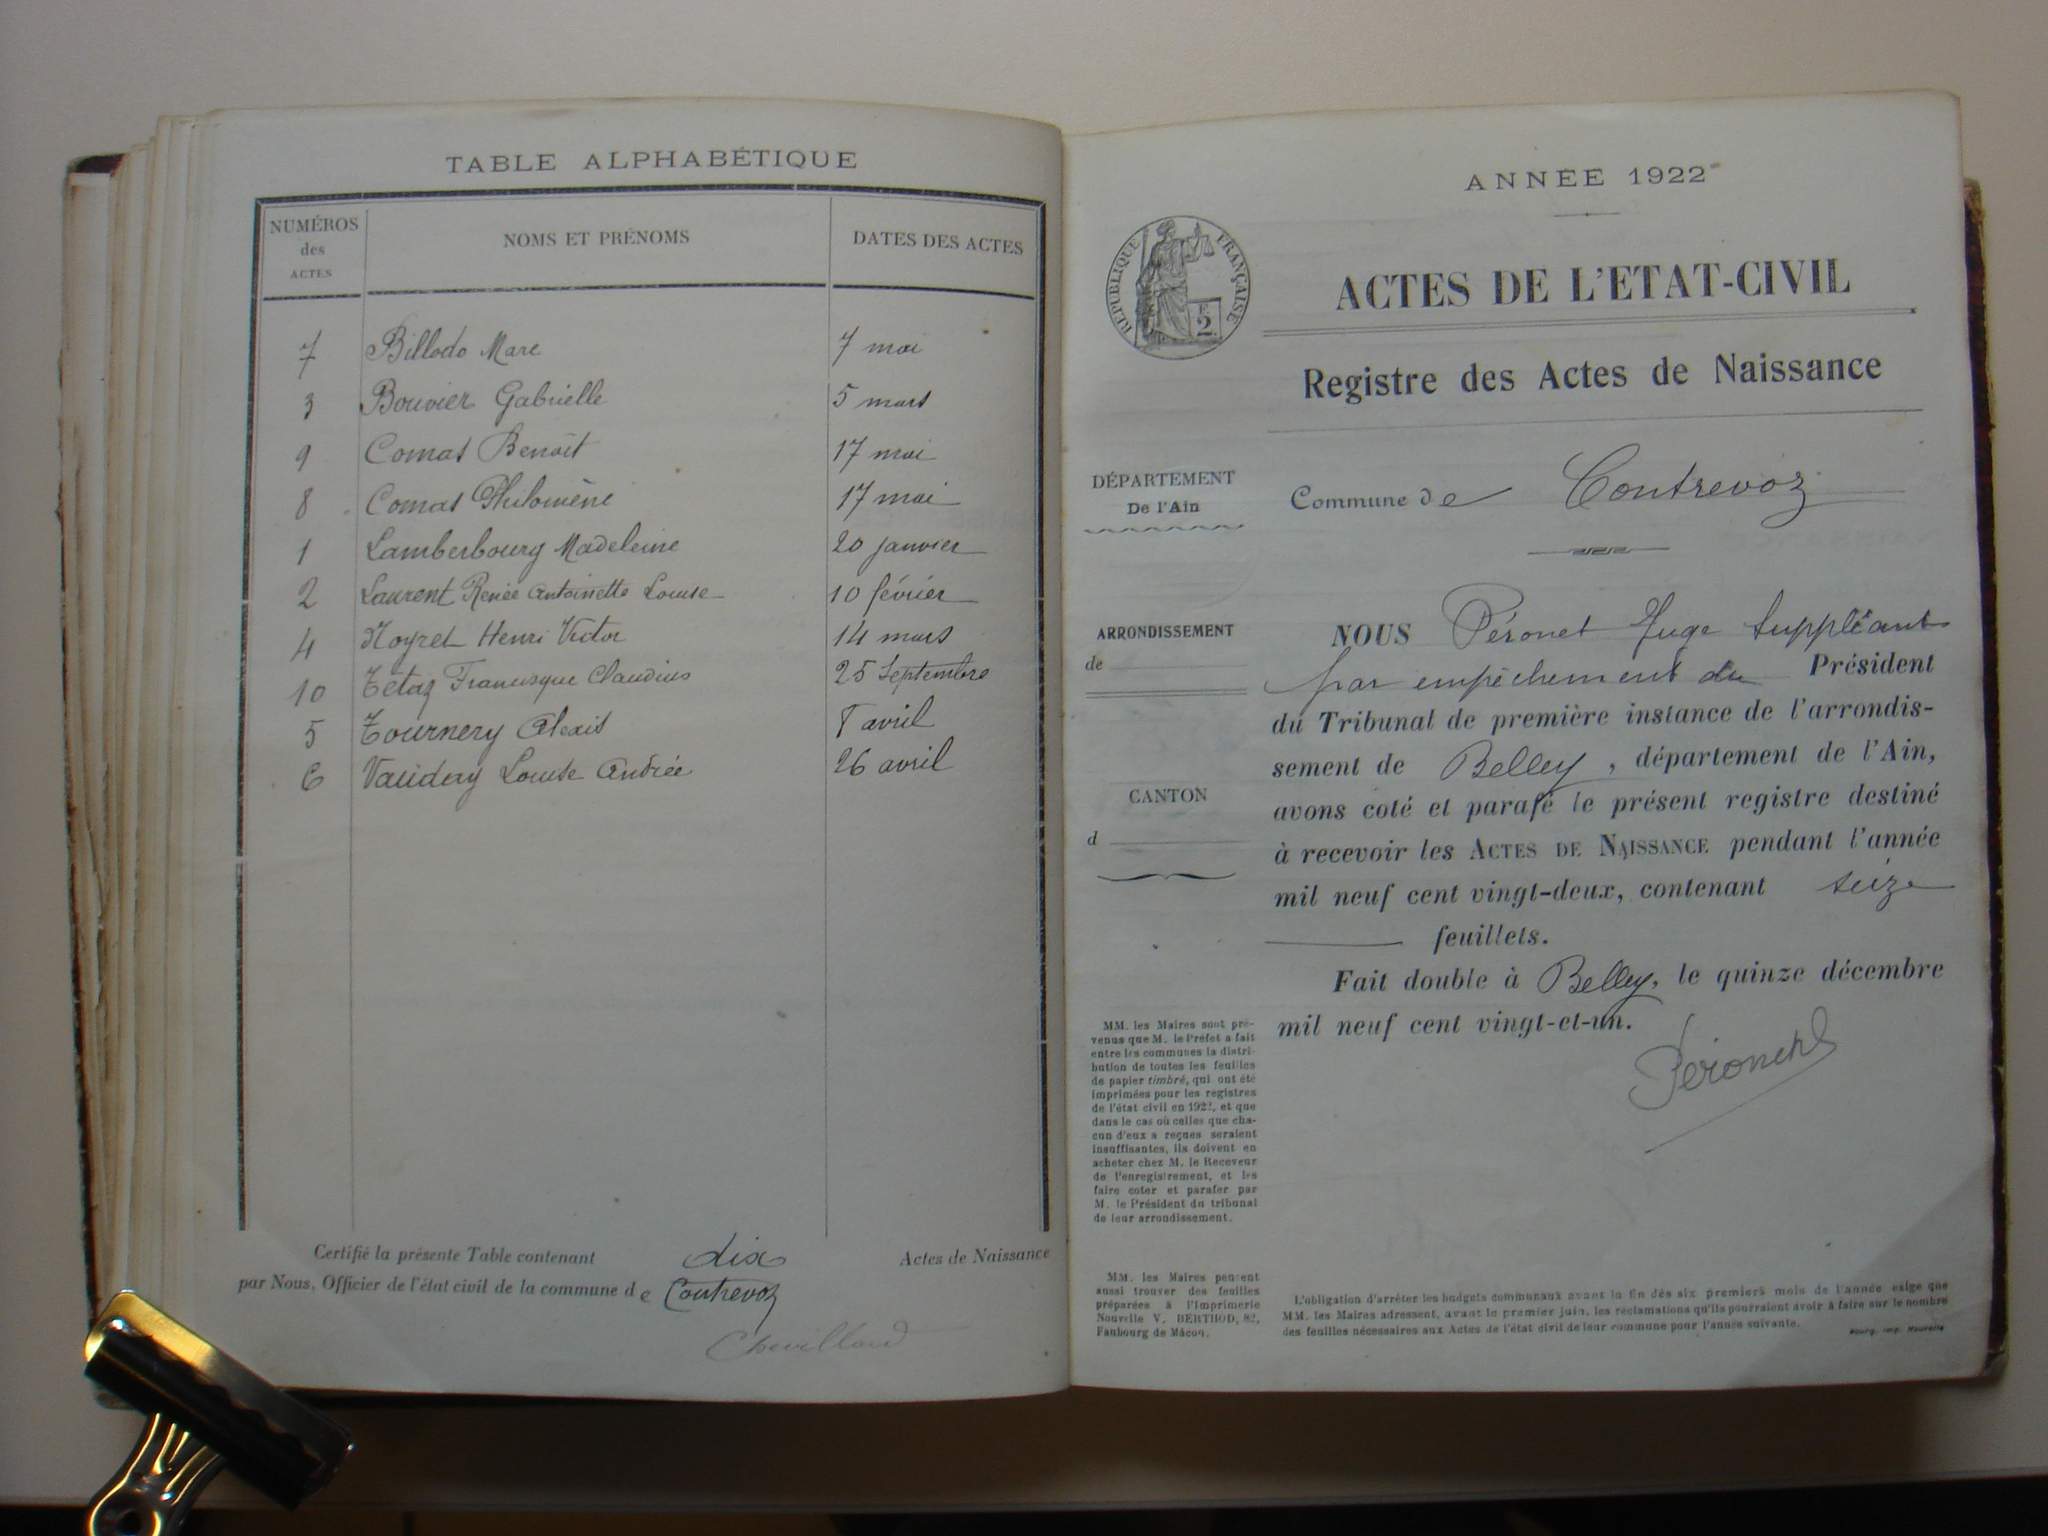 TABLE ALPHABÉTIQUE
NUMÉROS des ACTES NOMS ET PRÉNOMS DATES DES ACTES
7 Billodo Marc 7 mai
3 Bouvier Gabrielle 5 mars
9 Comas Benoit 17 mai
8 Comas Philomène 17 mai
1 Lamberbourg Madeleine 20 janvier
2 Laurent Renée Antoinette Louise 10 février
4 Noyret Henri Victor 14 mars
10 Tétaz Francisque Claudius 25 Septembre
5 Tournery Alexis avril
6 Vaudey Louise Andrée 26 avril
Certifié la présente Table contenant dix Actes de Naissance
par Nous, Officier de l'état civil de la commune de Contrevoz
Chevilland
ANNÉE 1922
RÉPUBLIQUE FRANÇAISE
F. 2
ACTES DE L'ETAT-CIVIL
Registre des Actes de Naissance
DÉPARTEMENT
De l'Ain
Commune de Contrevoz
ARRONDISSEMENT
de
CANTON
d
NOUS Péronet Juge Suppléant
par empêchement du Président
du Tribunal de première instance de l'arrondis-
sement de Belley, département de l'Ain,
avons coté et parafé le présent registre destiné
à recevoir les ACTES DE NAISSANCE pendant l'année
mil neuf cent vingt-deux, contenant seize
feuillets.
Fait double à Belley, le quinze décembre
mil neuf cent vingt-et-un.
MM. les Maires sont pré-
venus que M. le Préfet a fait
entre les communes la distri-
bution de toutes les feuilles
de papier timbré, qui ont été
imprimées pour les registres
de l'état civil en 1922, et que
dans le cas où celles que cha-
cun d'eux a reçues seraient
insuffisantes, ils doivent en
acheter chez M. le Receveur
de l'enregistrement, et les
faire coter et parafer par
M. le Président du tribunal
de leur arrondissement.
MM. les Maires peuvent
aussi trouver des feuilles
préparées à l'Imprimerie
Nouvelle V. BERTHOD, 82,
Faubourg de Mâcon.
L'obligation d'arrêter les budgets communaux avant la fin des six premiers mois de l'année exige que
MM. les Maires adressent, avant le premier juin, les réclamations qu'ils pourraient avoir à faire sur le nombre
des feuilles nécessaires aux Actes de l'état civil de leur commune pour l'année suivante.
Bourg, imp. Nouvelle